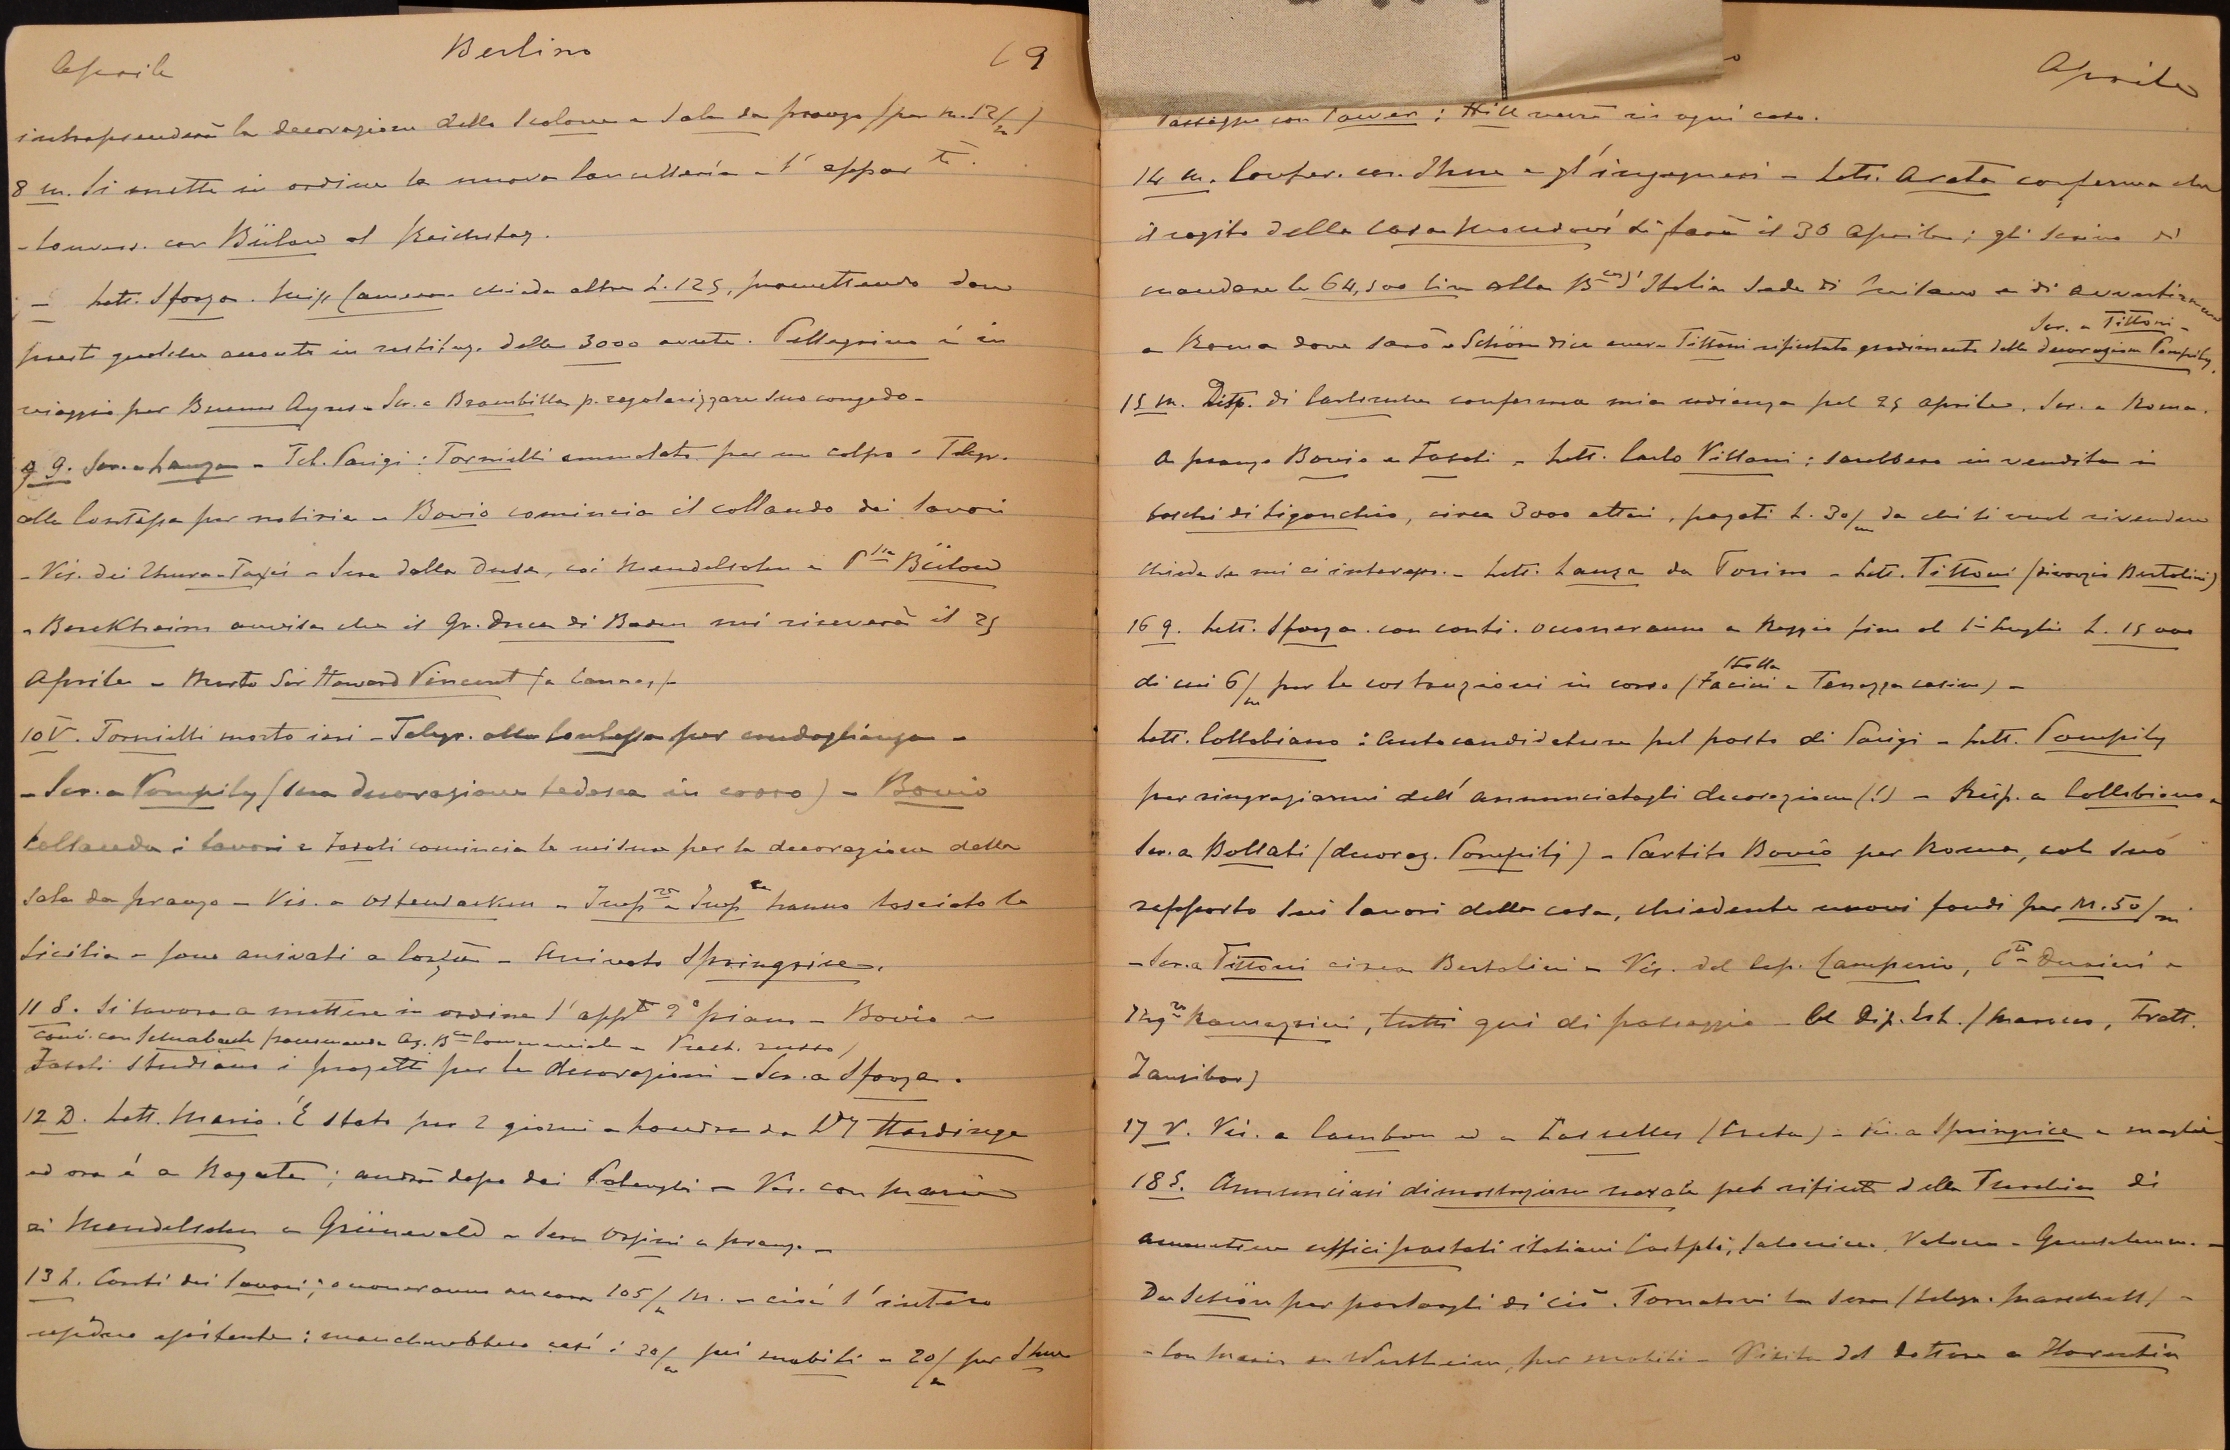 Aprile Berlino 69
intraprenderà la decorazione dello Scalone e Sala da pranzo (per M. 12/m)
8 M. Si mette in ordine la nuova Cancelleria e l'appar.to.
- Convers. con Bülow al Reichstag.
- Lett. Sforza. Miss Cameron chiede altre L. 125, promettendo dare
presto qualche acconto in restituz. delle 3000 avute. Pellegrino è in
viaggio per Buenos Ayres - Scr. a Brambilla p. regolarizzare suo congedo -
9 G. Scr. a Lanza - Tel. Parigi: Tornielli ammalato per un colpo - Telegr.
alla Contessa per notizie - Bovio comincia il collaudo dei lavori
- Vis. dei Thurn-Taxis - Sera dalla Duse, coi Mendelsohn e P.ssa Bülow
- Berckheim avvisa che il Gr. Duca di Baden mi riceverà il 25
Aprile - Morto Sir Howard Vincent (a Cannes) -
10 V. Tornielli morto ieri - Telegr. alla Contessa per condoglianza -
- Scr. a Pompilj (sua decorazione tedesca in corso) - Bovio
collauda i lavori e Fasoli comincia le misure per la decorazione della
sala da pranzo - Vis. a Ostensacken - Imp.re e Imp.ce hanno lasciato la
Sicilia e sono arrivati a Corfù - Arrivato Springrice.
11 S. Si lavora a mettere in ordine l'app.to 2° piano - Bovio e
Conv. con Schwabach (raccomanda Ag. B.ca Commerciale - Prest. russo)
Fasoli studiano i progetti per le decorazioni - Scr. a Sforza.
12 D. Lett. Mario. È stato per 2 giorni a Londra da Dy Hardinge
ed ora è a Rogate; andrà dopo dai - Vis. con Maria
ai Mendelsohn a Grünewald - Sera Orsini a pranzo -
13 L. Conti dei lavori; occorreranno ancora 105/m M. - cioè l'intero
residuo esistente: mancherebbero così i 30/m pei mobili e 20/m per Ihne
Aprile
Passeggio con Tower: Hill verrà in ogni caso.
14 M. Confer. con Ihne e gl'ingegneri - Lett. Arata conferma che
il rogito della Casa Mondovì si farà il 30 Aprile; gli scrivo di
mandare le 64,500 lire alla B.ca d'Italia Sede di Milano e di avvertirmene
Scr. a Tittoni -
a Roma dove sarò - Schön dice aver Tittoni rifiutato gradimento della decorazione Pompilj.
15 M. Disp. di Carlsruhe conferma mia udienza pel 25 Aprile. Scr. a Roma.
A pranzo Bovio e Fasoli - Lett. Carlo Villani: sarebbero in vendita i
boschi di Ligonchio, circa 3000 ettari, pagati L. 30/m da chi li vuol rivendere
chiede se mi ci interesso. - Lett. Lanza da Torino - Lett. Tittoni (divorzio Bertolini)
16 G. Lett. Sforza con conti. Occorreranno a Reggio fino al 1° Luglio L. 15 000
Stalla
di cui 6/m per le costruzioni in corso ( e Terrazza casino) -
Lett. Collobiano: autocandidatura pel posto di Parigi - Lett. Pompilj
per ringraziarmi dell'annunciatagli decorazione (!) - Risp. a Collobiano -
Scr. a Bollati (decoraz. Pompilj) - Partito Bovio per Roma, col suo
rapporto sui lavori della casa, chiedente nuovi fondi per M. 50/m
- Scr. a Tittoni circa Bertolini - Vis. del Cap. Camperio, C.te Durini e
Ing.re Ramazzini, tutti qui di passaggio - Al Dip. Est. (Marocco, Tratt.
Zanzibar)
17 V. Vis. a Cambon ed a Lascelles (Creta) - Vis. a Springrice e moglie -
18 S. Annunciasi dimostrazione navale pel rifiuto della Turchia di
ammettere uffici postali italiani Costpli, Salonicco, Valona - Gerusalemme. -
Da Schön per parlargli di ciò. Tornatovi la sera (telegr. Marschall) -
- Con Maria da Wertheim, per mobili - Visita del dottore a Florentin